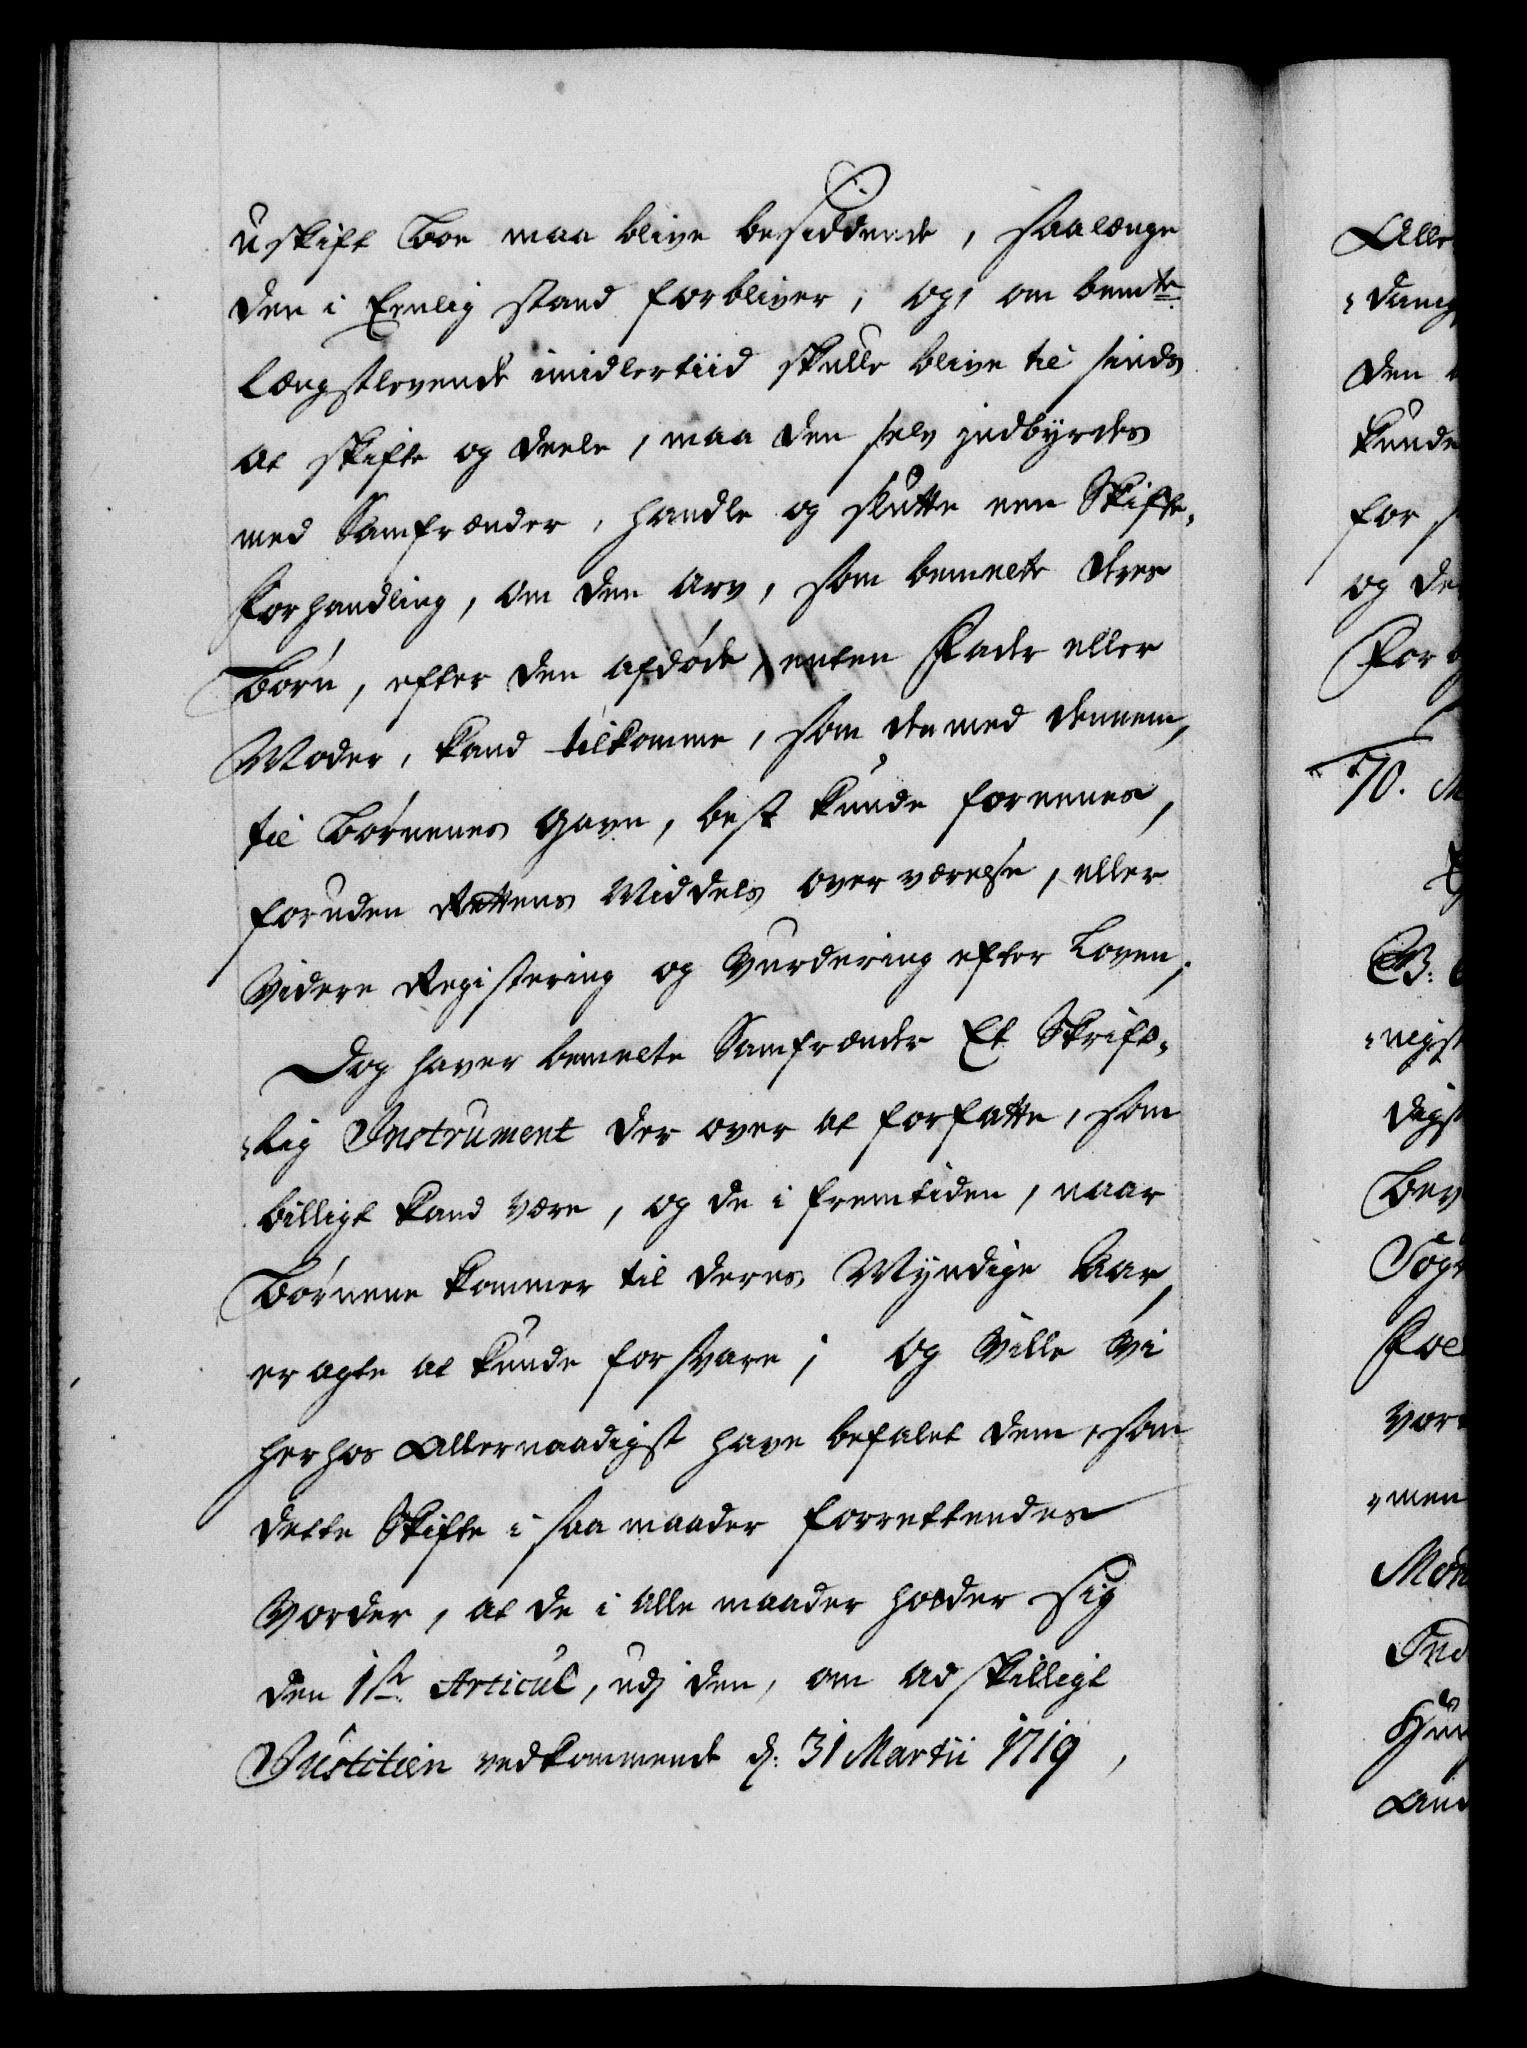 uskift Boe maa blive besiddende, saalænge
den i Eenlig stand forbliver, og, om bemte
længstlevende imidlertiid skulle blive til sinds
at skifte og deele, maa den selv indbyrdes
med Samfrænder, handle og slutte een Skifte-
Forhandling, om den Arv, som bemelte deres
Børn, efter den afdøde, enten Fader eller
Moder, kand tilkomme, som de med dennem,
til Børnenes Gavn, best kunde foreenes,
foruden Rettens Middels overværelse, eller
videre Registering og Vurdering efter Loven;
Dog haver bemelte Samfrænder Et Skrift-
lig Instrument der over at forfatte, som
billigt kand være, og de i fremtiden, naar
Børnene kommer til deres Myndige Aar,
er agte at kunde forsvare; og Ville Vi
herhos Allernaadigst have befalet dem, som
dette Skifte i saa maader forrettendes
Vorder, at de i alle maader holder sig
den 1ste Articul, udj den, om adskilligt
Justitien vedkommende d: 31 Martii 1719,
Alle
dung
den
kunde
for
og de
For
70. M
B:
nigst
digst
Bev
Sogn
Foe
vor
men
Mon
Ind
Hun
Land